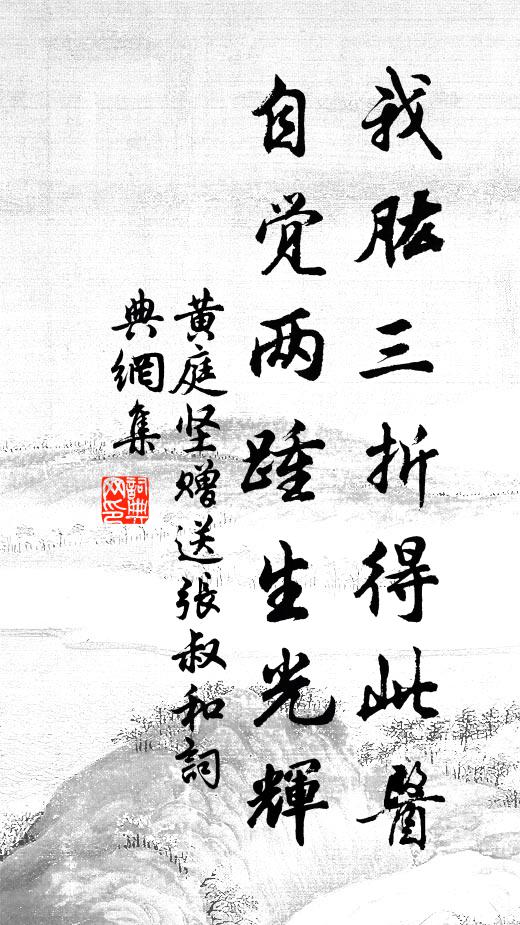 我肱三折得此醫
自觉两踵生光輝
黄庭坚赠送張叔和詞
典網集
詞典网印